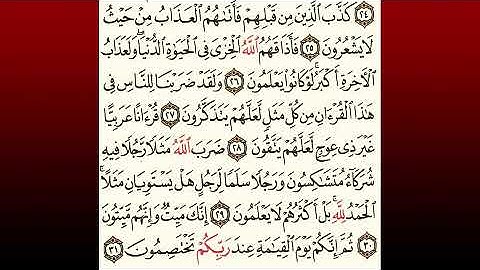 ﴿٢٤﴾ كَذَّبَ الَّذِينَ مِن قَبْلِهِمْ فَأَتَىٰهُمُ الْعَذَابُ مِنْ حَيْثُ
لَا يَشْعُرُونَ ﴿٢٥﴾ فَأَذَاقَهُمُ اللَّهُ الْخِزْىَ فِى الْحَيَوٰةِ الدُّنْيَا ۖ وَلَعَذَابُ
الْـَٔاخِرَةِ أَكْبَرُ ۚ لَوْ كَانُوا۟ يَعْلَمُونَ ﴿٢٦﴾ وَلَقَدْ ضَرَبْنَا لِلنَّاسِ فِى
هَٰذَا الْقُرْءَانِ مِن كُلِّ مَثَلٍ لَّعَلَّهُمْ يَتَذَكَّرُونَ ﴿٢٧﴾ قُرْءَانًا عَرَبِيًّا
غَيْرَ ذِى عِوَجٍ لَّعَلَّهُمْ يَتَّقُونَ ﴿٢٨﴾ ضَرَبَ اللَّهُ مَثَلًا رَّجُلًا فِيهِ
شُرَكَآءُ مُتَشَٰكِسُونَ وَرَجُلًا سَلَمًا لِّرَجُلٍ هَلْ يَسْتَوِيَانِ مَثَلًا ۚ
الْحَمْدُ لِلَّهِ ۚ بَلْ أَكْثَرُهُمْ لَا يَعْلَمُونَ ﴿٢٩﴾ إِنَّكَ مَيِّتٌ وَإِنَّهُم مَّيِّتُونَ
﴿٣٠﴾ ثُمَّ إِنَّكُمْ يَوْمَ الْقِيَٰمَةِ عِندَ رَبِّكُمْ تَخْتَصِمُونَ ﴿٣١﴾